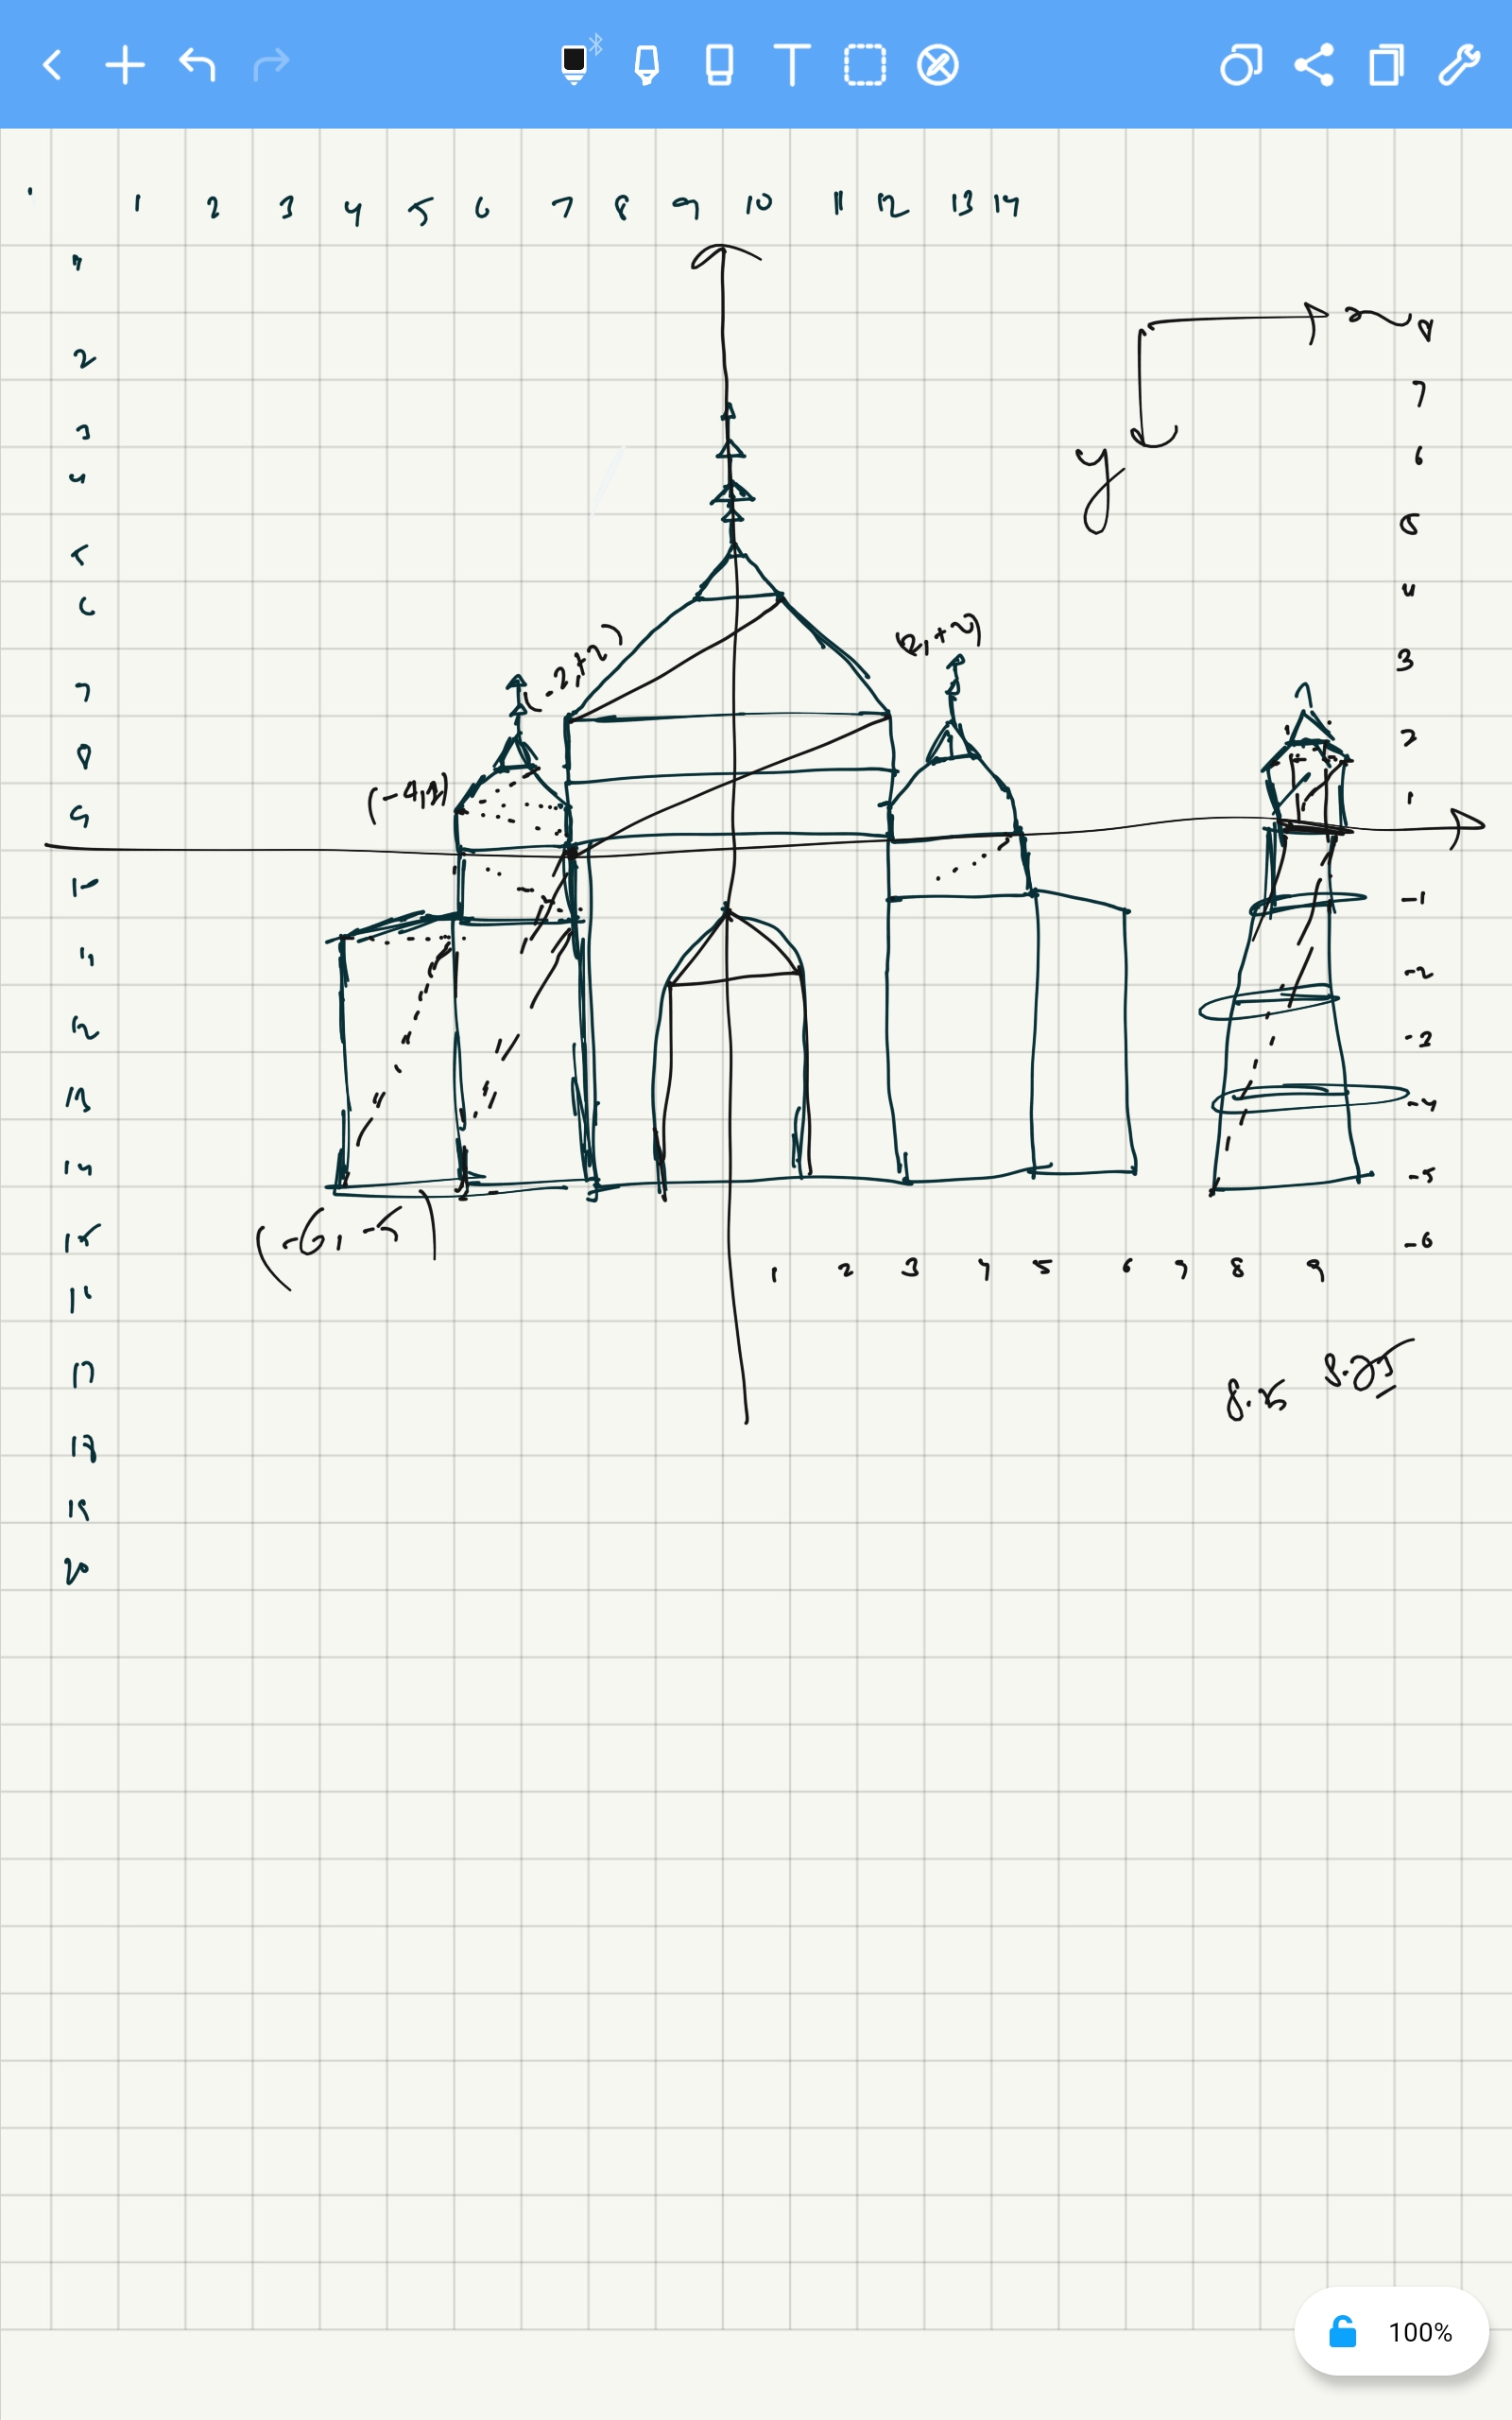 1 2 3 4 5 6 7 8 9 10 11 12 13 14
1
2
3
4
5
6
7
8
9
10
11
12
13
14
15
16
17
18
19
20
y
8
7
6
5
4
3
2
1
-1
-2
-3
-4
-5
-6
(-2,+2)
(2,+2)
(-6,-5)
1 2 3 4 5 6 7 8 9
8.5 8.25
100%